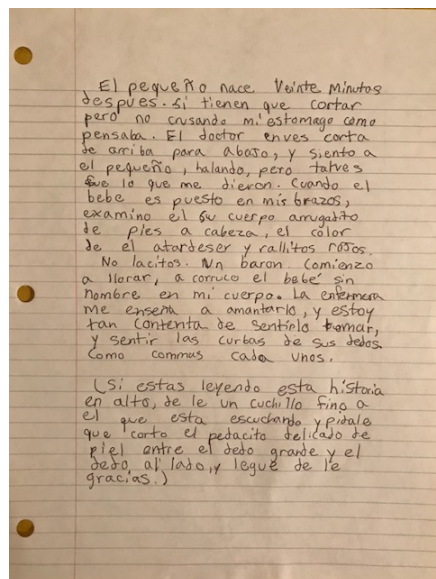 El pequeño nace Veinte Minutos
despues. si tienen que cortar
pero no crusando mi estomago como
pensaba. El doctor enves corta
de arriba para abajo, y siento a
el pequeño, halando, pero talves
fue lo que me dieron. Cuando el
bebe es puesto en mis brazos,
examino el su cuerpo arrugadito
de pies a cabeza, el color
de el atardeser y rallitos rojos.
No lacitos. Un baron. Comienzo
a llorar, a corruco el bebé sin
nombre en mi cuerpo. La enfermera
me enseña a amantarlo, y estoy
tan contenta de sentirlo tomar,
y sentir las curbas de sus dedos.
Como commas cada unos.
(Si estas leyendo esta historia
en alto, de le un cuchillo fino a
el que esta escuchando y pidale
que corto el pedacito delicado de
piel entre el dedo grande y el
dedo al lado, y legue de le
gracias.)